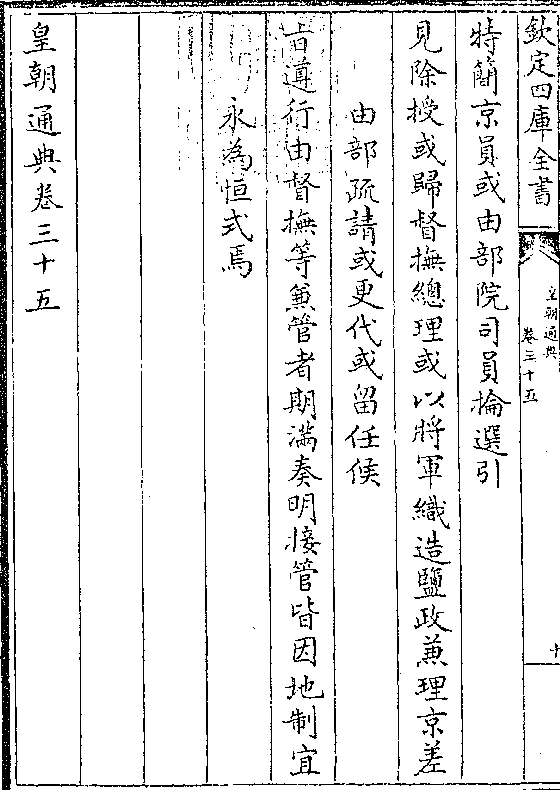 欽定四庫全書
皇朝通典
卷三十五
十
特簡京員或由部院司員掄選引
見除授或歸督撫總理或以將軍織造鹽政兼理京差
由部疏請或更代或留任候
旨遵行由督撫等兼管者期滿奏明接管皆因地制宜
永為恒式焉
皇朝通典卷三十五